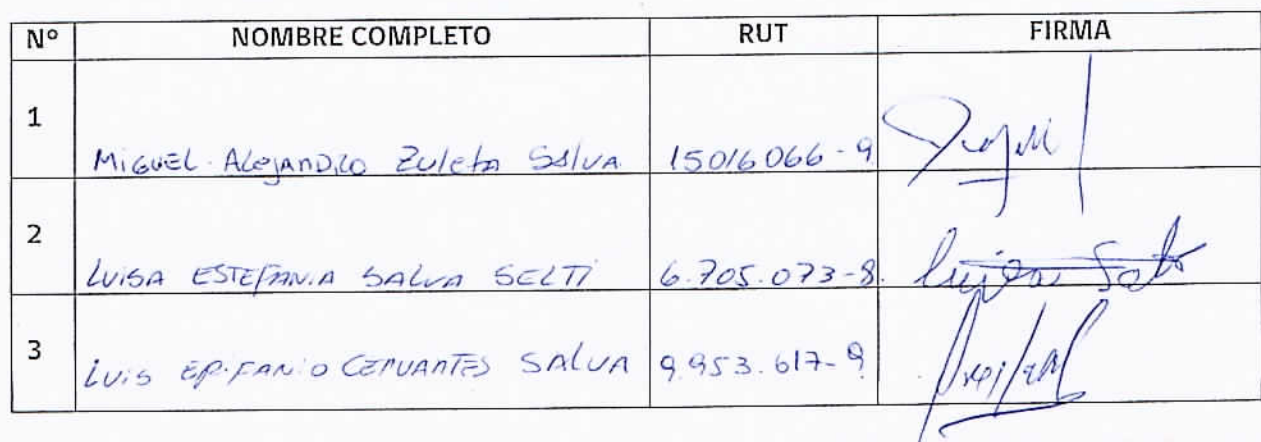 N° NOMBRE COMPLETO RUT FIRMA
1 MIGUEL Alejandro Zuleta Salva 15016066-9
2 LUISA ESTEFANIA SALVA SELTI 6.705.073-8 Luisa Salo
3 Luis EPIFANIO CERVANTES SALVA 9.953.617-9